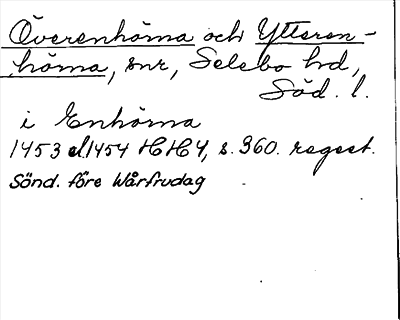 Överenhörna och Ytteren-
hörna, snr, Selebo hd,
Söd. l.
i Enhörna
1453 el. 1454 HH 4, s. 360. regest.
Sönd. före Wårfrudag